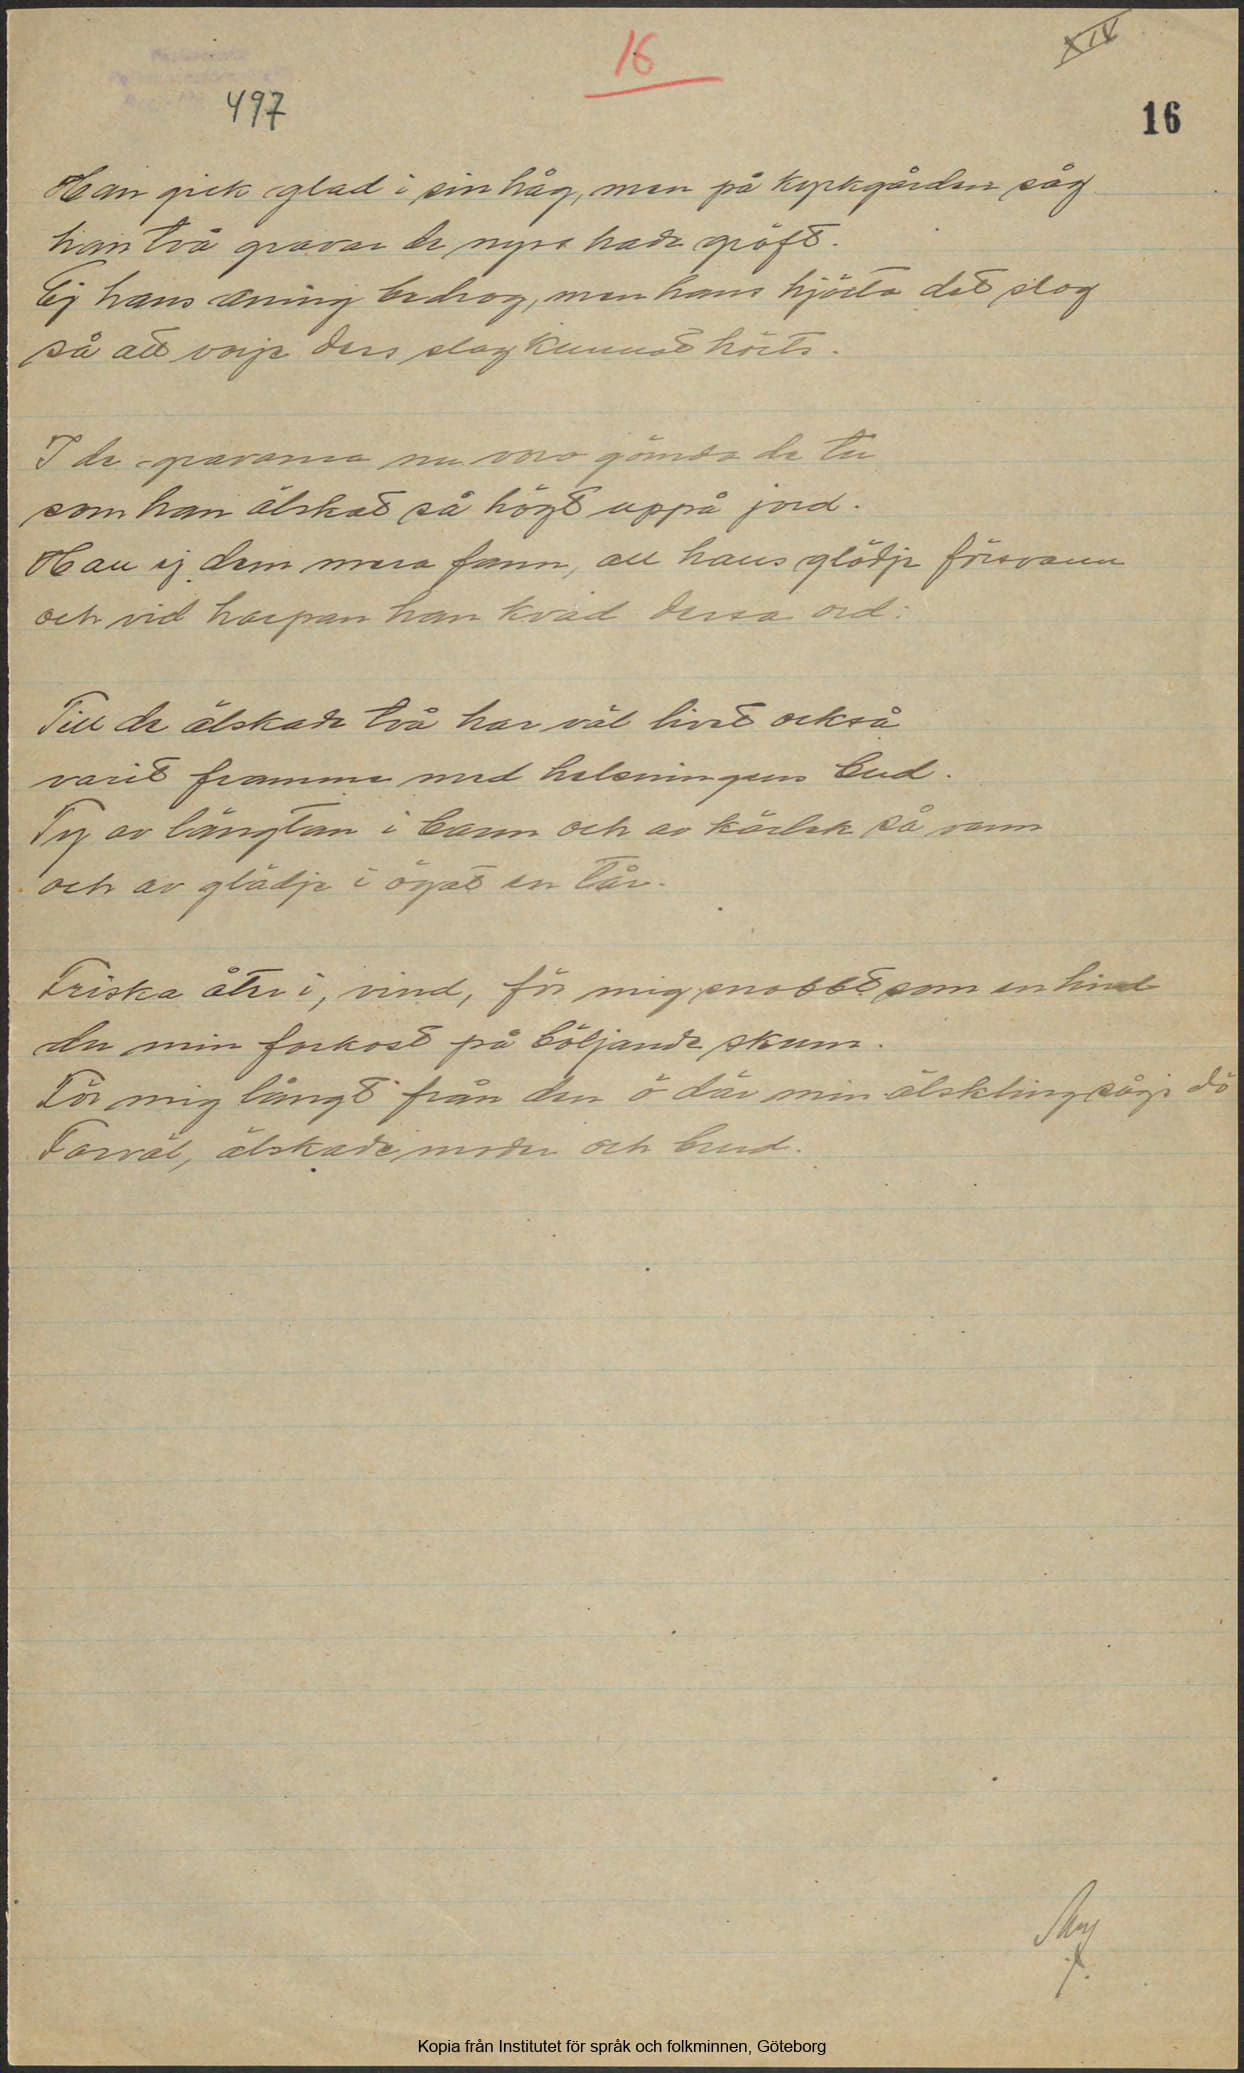 16
XIV
497
16
Han gick glad i sin håg, men på kyrkgården såg
han två gravar de nyss hade gräft.
Ej hans aning bedrog, men hans hjärta det slog
så att varje dess slag kunnat hörts.
I de gravarna nu voro gömda de tu
som han älskat så högt uppå jord.
Han ej dem mera fann, all hans glädje försvann
och vid harpan han kvad dessa ord:
Till de älskade två har väl livet också
varit framme med helsningens bud.
Ty av längtan i barm och av kärlek så varm
och av glädje i ögat en tår.
Friska åter i, vind, för mig snabbt som en hind
du min farkost på böljande skum.
För mig långt från den ö där min älskling sågs dö
Farväl, älskade moder och brud.
Kopia från Institutet för språk och folkminnen, Göteborg